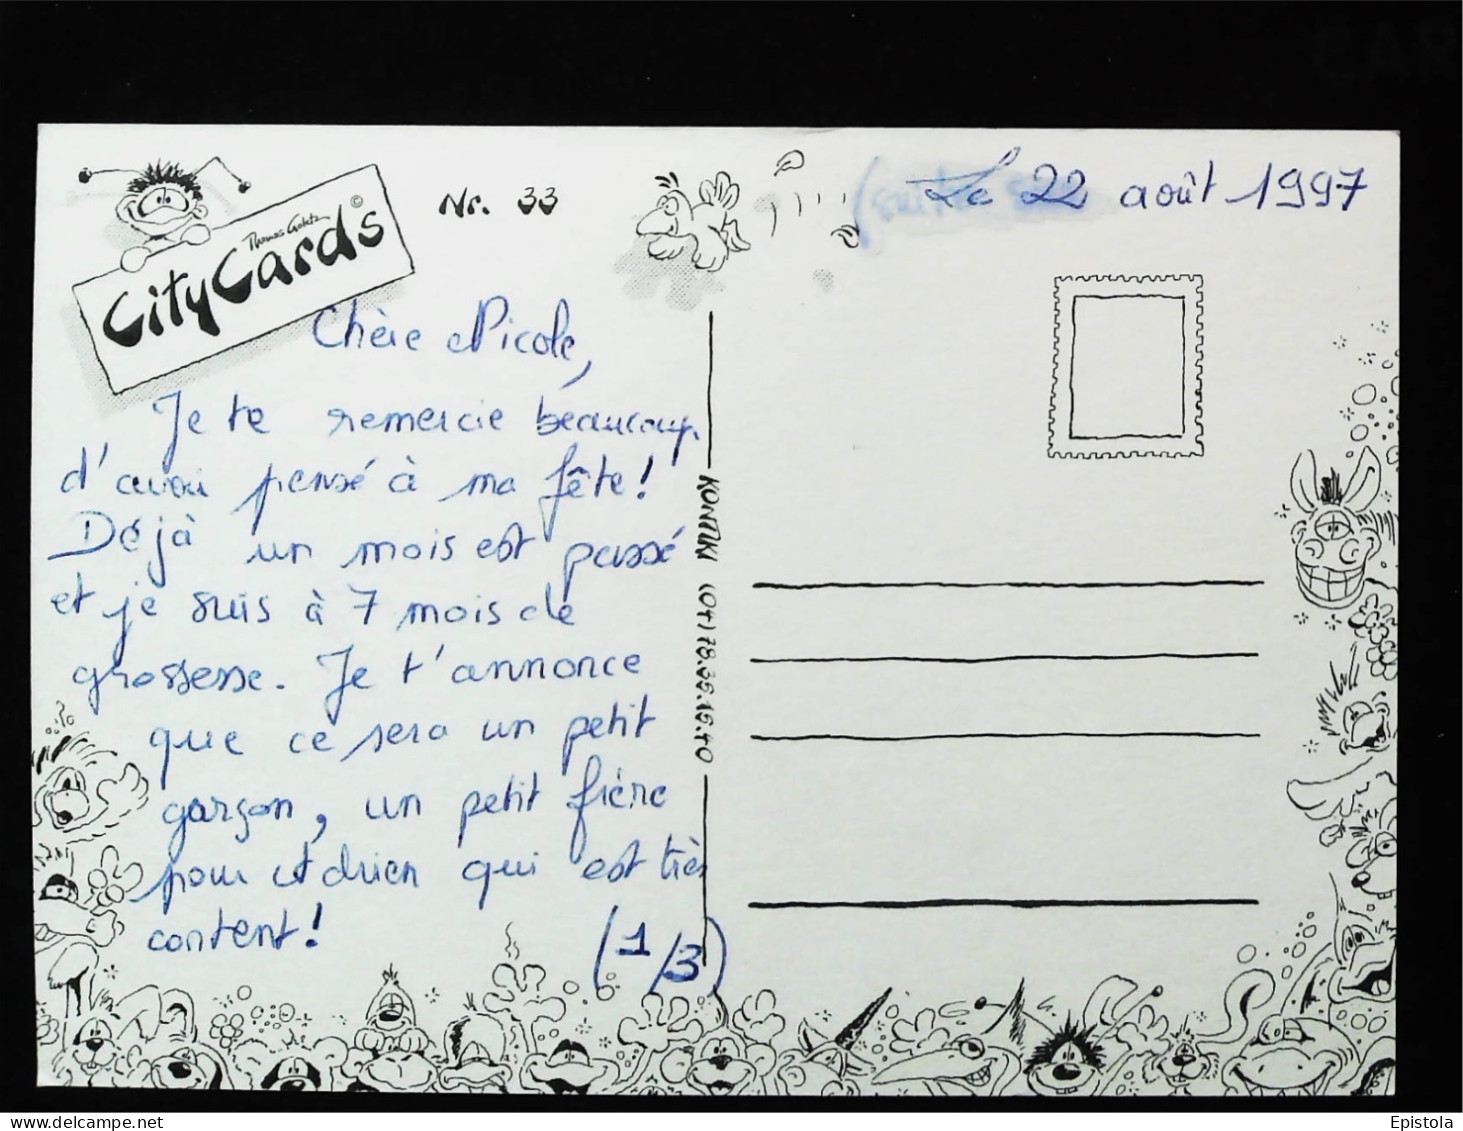 Thomas Gohtz ©
CityCards
Nr. 33
Le 22 août 1997
Chère Nicole,
Je te remercie beaucoup
d'avoir pensé à ma fête!
Déjà un mois est passé
et je suis à 7 mois de
grossesse. Je t'annonce
que ce sera un petit
garçon, un petit frère
pour Adrien qui est très
content!
(1/3)
KONTIKI (04) 78.35.15.40
delcampe.net
Epistola